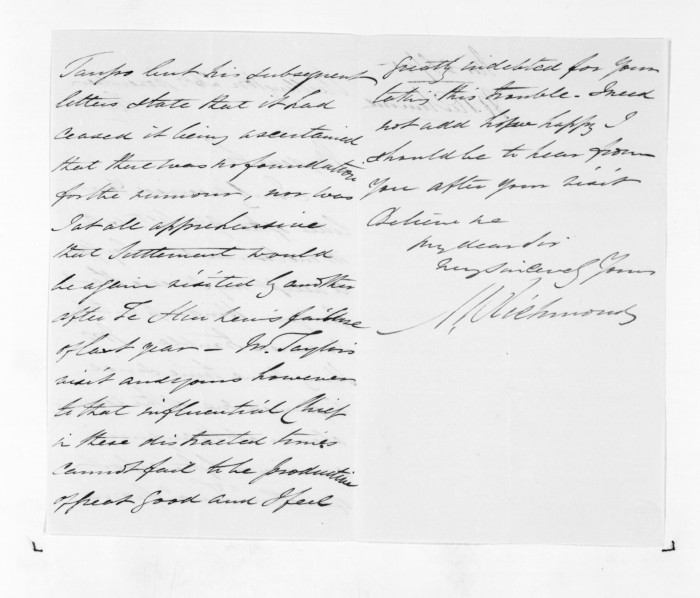 Taupo but his subsequent
letters state that it had
ceased it being ascertained
that there was no foundation
for the rumour, nor was
I at all apprehensive
that Settlement would
be again visited by another
after Te Heu Heu's failure
of last year – Mr. Taylor's
visit and yours however
to that influential Chief
in these distracted times
cannot fail to be productive
of great good and I feel
greatly indebted for your
taking this trouble – I need
not add how happy I
should be to hear from
you after your visit
Believe me
My dear Sir
Very sincerely Yours
M Richmond